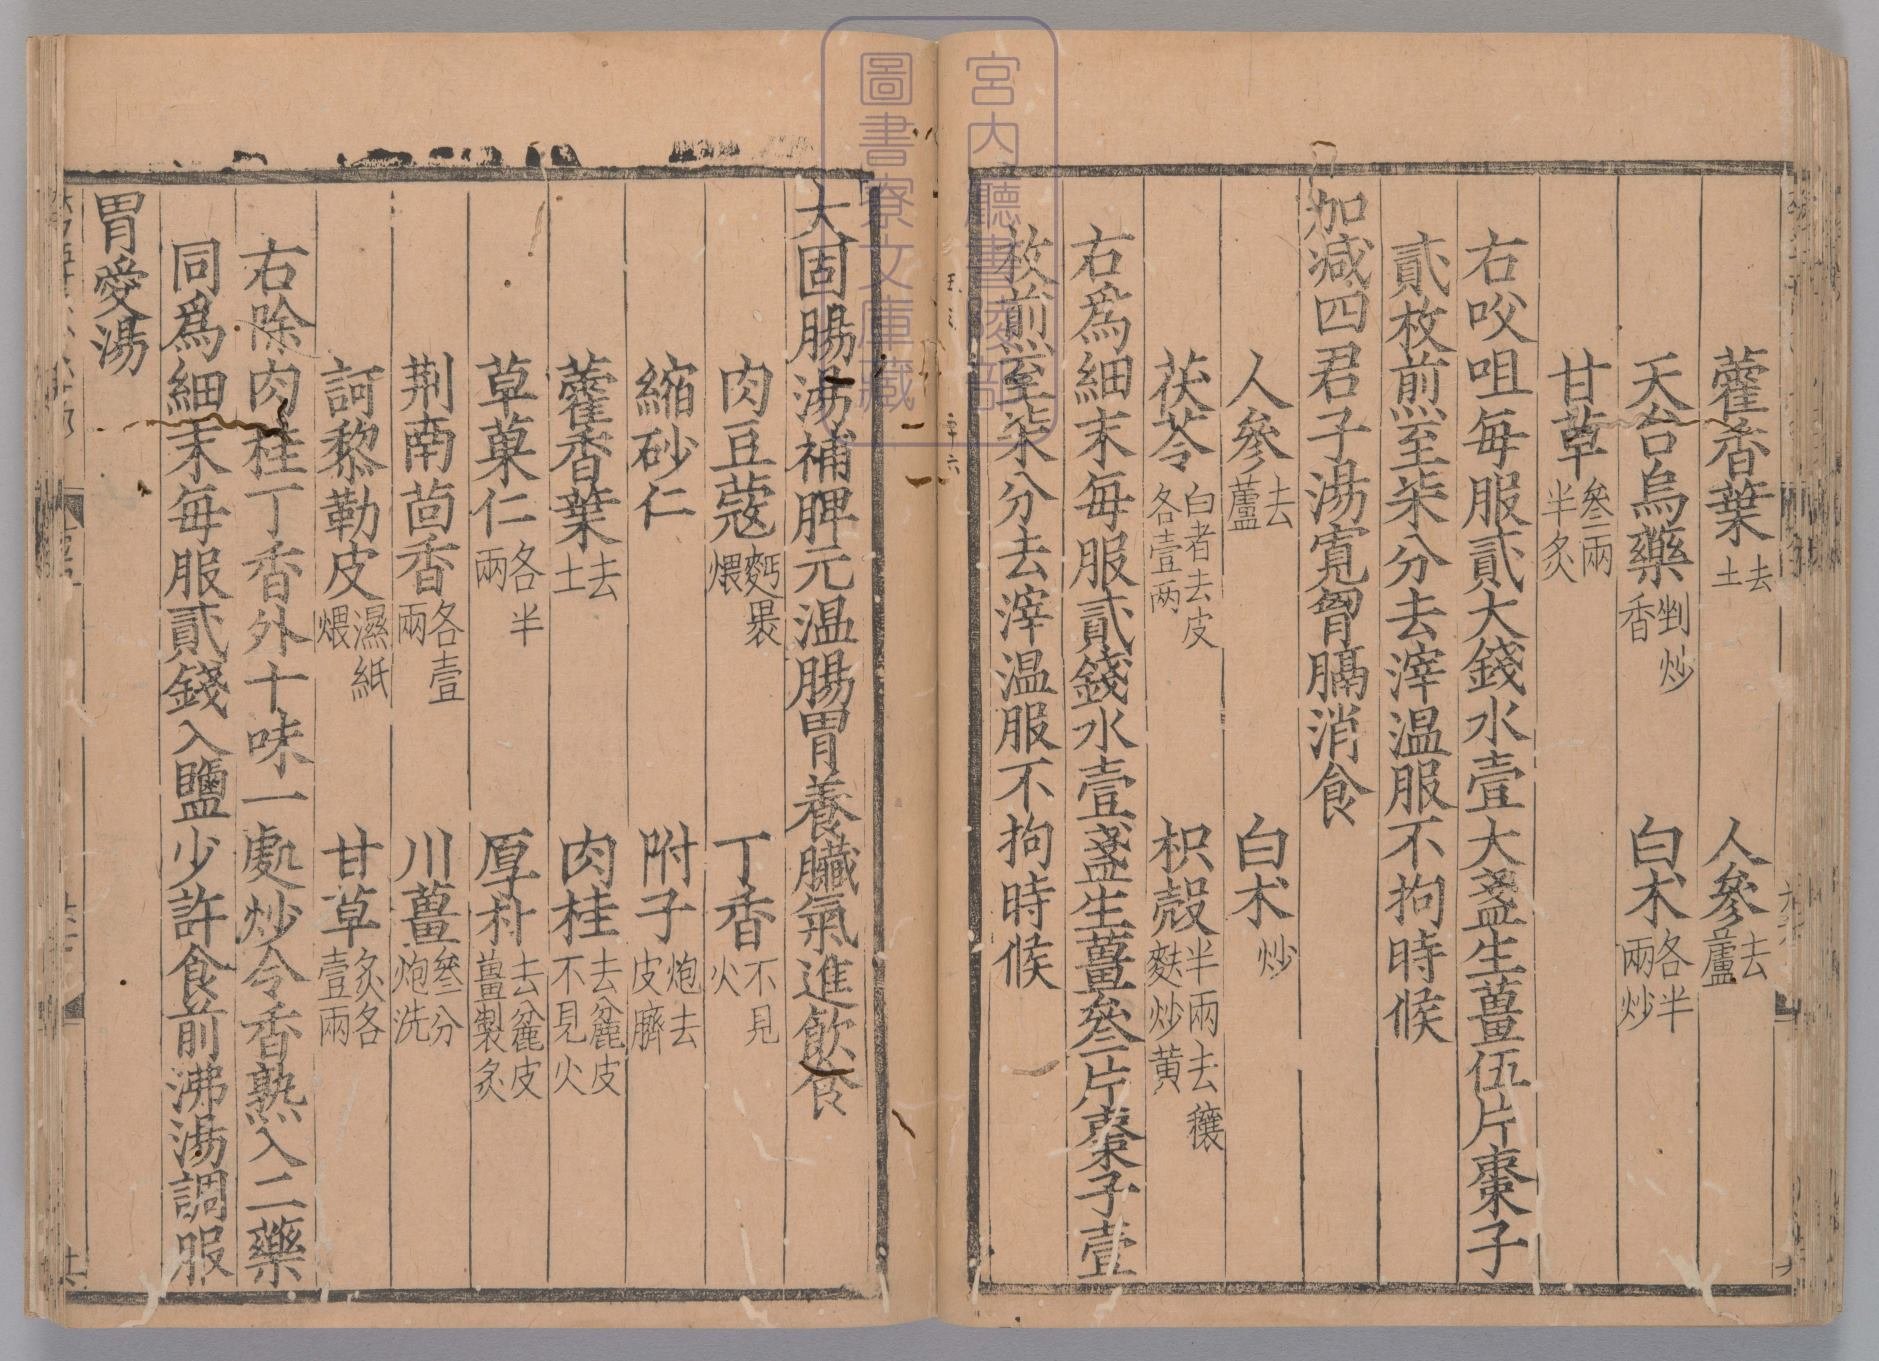 藿香葉去土　人參去蘆
天台烏藥剉炒香　白朮各半兩炒
甘草叄兩半炙
右㕮咀每服貳大錢水壹大盞生薑伍片棗子
貳枚煎至柒分去滓温服不拘時候
加减四君子湯寬胷膈消食
人參去蘆　白朮炒
茯苓白者去皮各壹两　枳殼半兩去穰麩炒黄
右爲細末每服貳錢水壹盞生薑叄片棗子壹
枚煎至柒分去滓温服不拘時候
大固腸湯補脾元温腸胃養臟氣進飲食
肉豆蔻麪裹煨　丁香不見火
縮砂仁　附子炮去皮臍
藿香葉去土　肉桂去麄皮不見火
草菓仁各半兩　厚朴去麄皮薑製炙
荆南茴香各壹兩　川薑叄分炮洗
訶黎勒皮濕紙煨　甘草炙各壹兩
右除肉桂丁香外十味一處炒令香熟入二藥
同爲細末每服貳錢入鹽少許食前沸湯調服
胃愛湯
宮内廳書陵部
圖書寮文庫藏